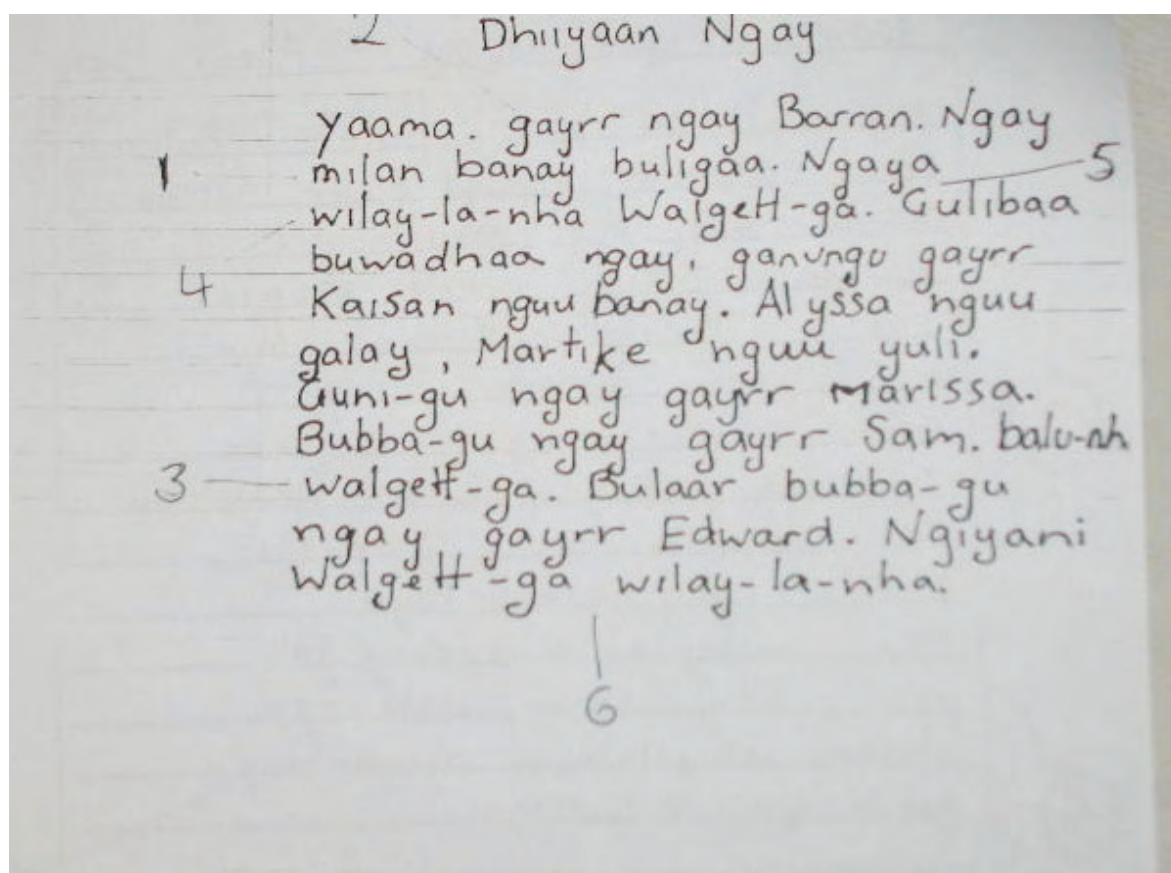 2 Dhiiyaan Ngay
Yaama. gayrr ngay Barran. Ngay
1 milan banay buligaa. Ngaya 5
wilay-la-nha Walgett-ga. Gulibaa
buwadhaa ngay, ganungu gayrr
4 Kaisan nguu banay. Alyssa nguu
galay, Martike nguu yuli.
Guni-gu ngay gayrr Marissa.
Bubba-gu ngay gayrr Sam. balu-nh
3 walgett-ga. Bulaar bubba-gu
ngay gayrr Edward. Ngiyani
Walgett-ga wilay-la-nha.
6